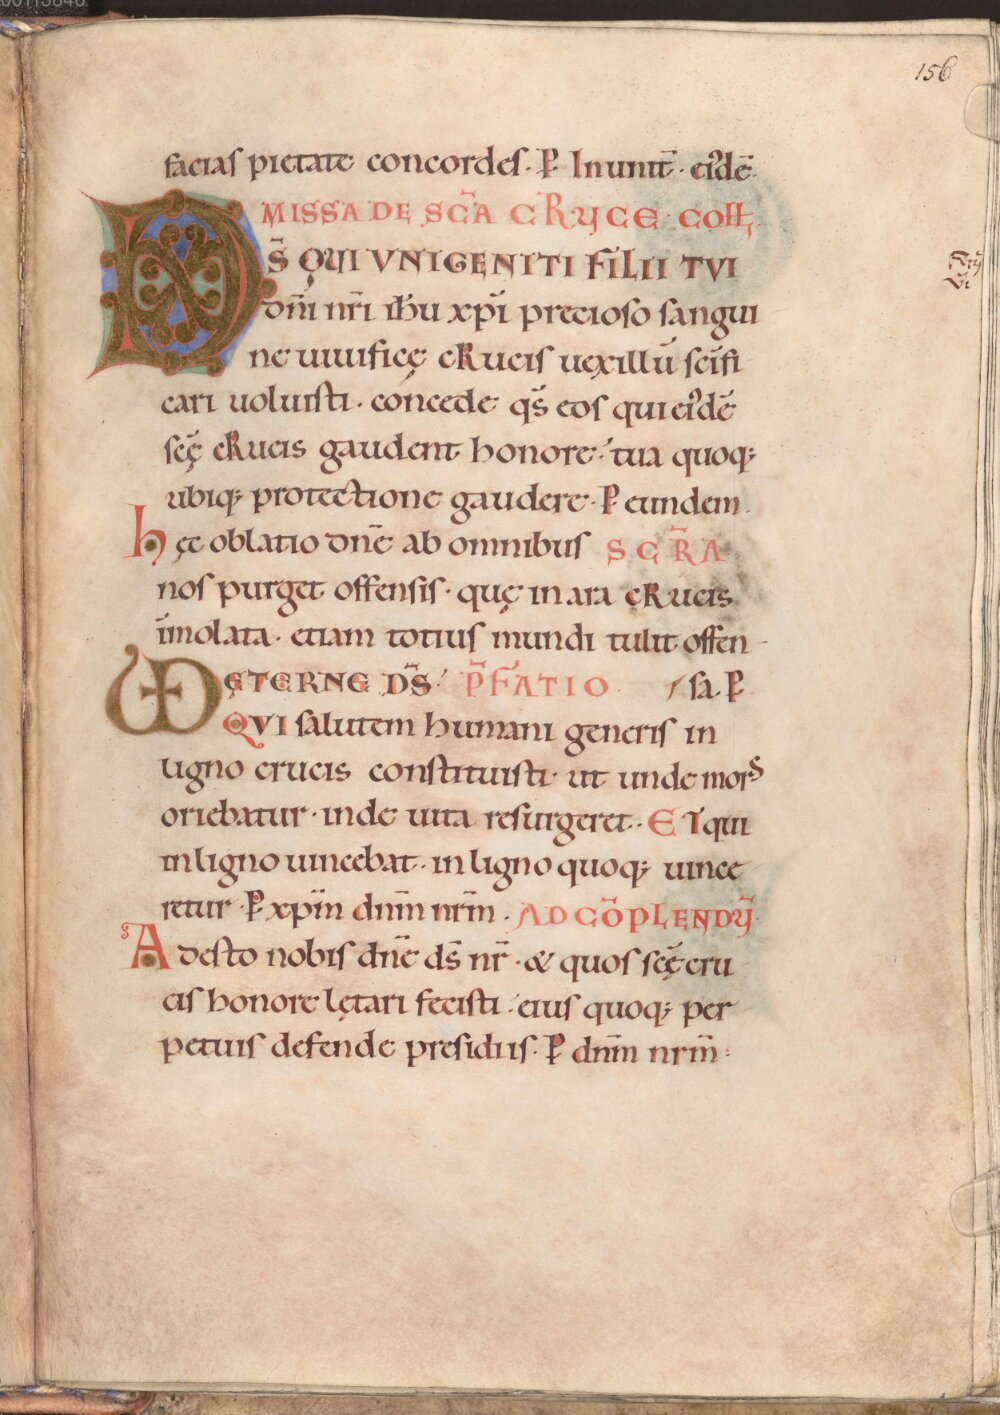 156
facias pietate concordes. P. In unit̄. eiᵈdē.
MISSA DE SC̄A CRUCE COLL
DS̄ QUI VNIGENITI FILII TVI
dn̄i nr̄i ih̄u xp̄i precioso sangui
ne uiuificę cRucis uexillū scīfi
cari uoluisti. concede qs̄ eos qui eiᵈdē
scę̄ cRucis gaudent honore. tua quoq;
ubiq; protectione gaudere. P eundem.
hęc oblatio dn̄e ab omnibus SCR̄A
nos purget offensis. quę in ara cRucis
īmolata. etiam totius mundi tulit offen
VD ęTERNE DS̄. PF̄ATIO / sa. P
QVI salutem humani generis in
ligno crucis constituisti. ut unde mors
oriebatur. inde uita resurgeret. ET qui
in ligno uincebat. in ligno quoq; uince
retur. P xp̄m dn̄m nr̄m. AD CŌPLENDŪ
s Adesto nobis dn̄e ds̄ nr̄. & quos scę̄ cru
cis honore lętari fecisti. eius quoq; per
petuis defende presidiis. P dn̄m nr̄m.